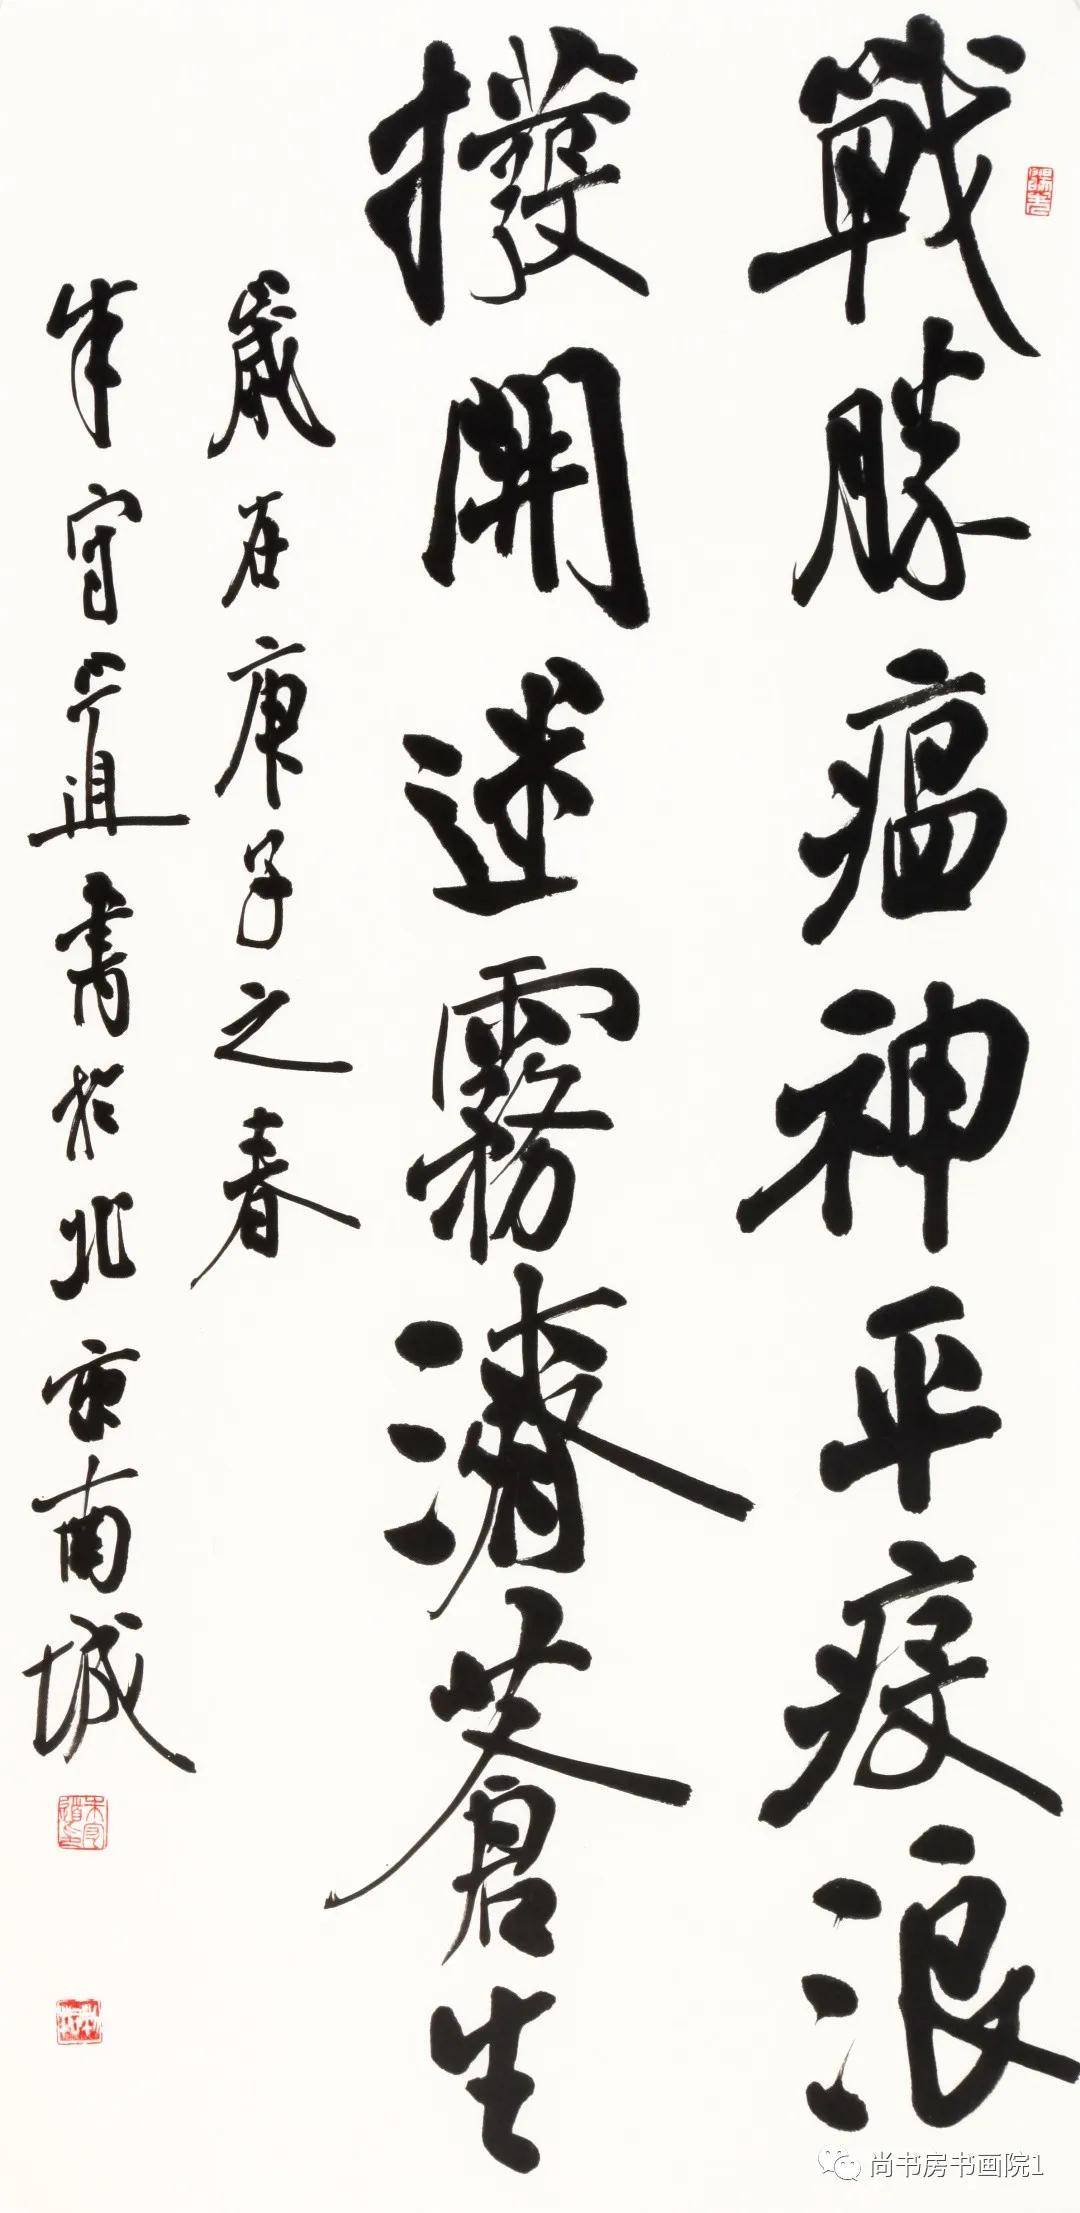 戰勝瘟神平疫浪
撥開迷霧濟蒼生
歲在庚子之春
朱守道書於北京南城
尚书房书画院1